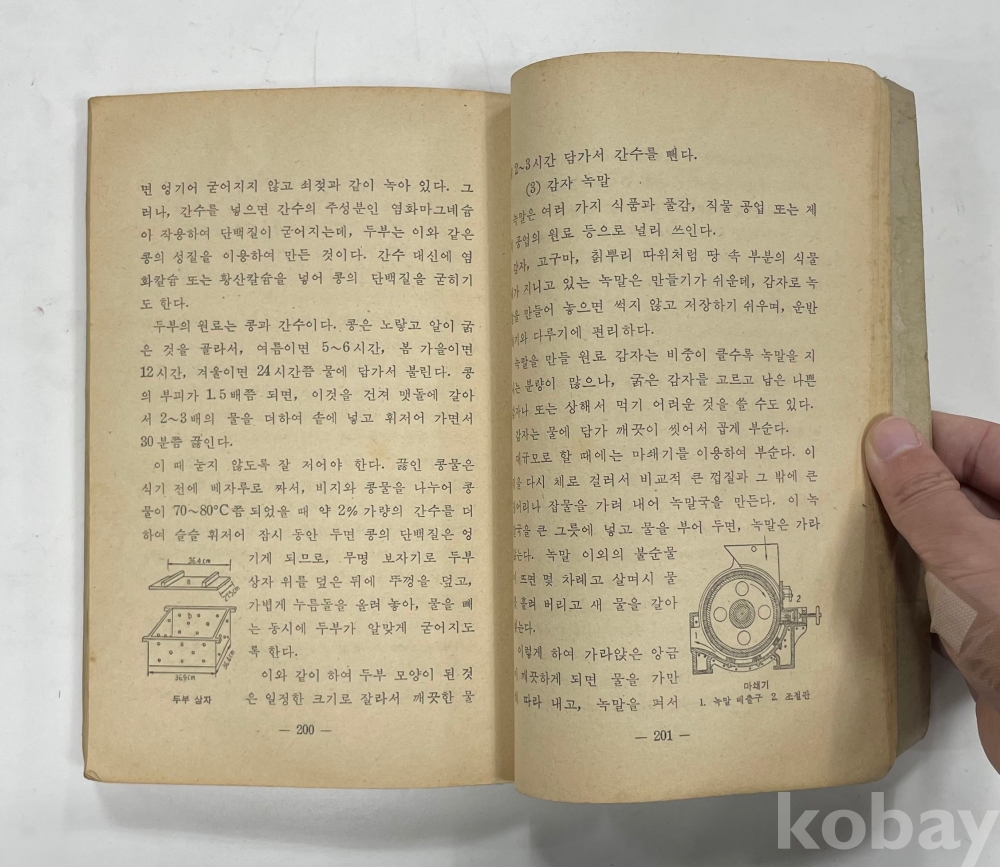 면 엉기어 굳어지지 않고 쇠젖과 같이 녹아 있다. 그
러나, 간수를 넣으면 간수의 주성분인 염화마그네슘
아 작용하여 단백질이 굳어지는데, 두부는 이와 같은
콩의 성질을 이용하여 만든 것이다. 간수 대신에 염
화칼슘 또는 황산칼슘을 넣어 콩의 단백질을 굳히기
도 한다.
두부의 원료는 콩과 간수이다. 콩은 노랗고 알이 굵
은 것을 골라서, 여름이면 5~6시간, 봄 가을이면
12시간, 겨울이면 24시간쯤 물에 담가서 불린다. 콩
의 부피가 1.5배쯤 되면, 이것을 건져 맷돌에 갈아
서 2~3배의 물을 더하여 솥에 넣고 휘저어 가면서
30분쯤 끓인다.
이 때 눋지 않도록 잘 저어야 한다. 끓인 콩물은
식기 전에 베자루로 짜서, 비지와 콩물을 나누어 콩
물이 70~80°C쯤 되었을 때 약 2%가량의 간수를 더
하여 슬슬 휘저어 잠시 동안 두면 콩의 단백질은 엉
기게 되므로, 무명 보자기로 두부
상자 위를 덮은 뒤에 뚜껑을 덮고,
가볍게 누름돌을 올려 놓아, 물을 빼
는 동시에 두부가 알맞게 굳어지도
록 한다.
이와 같이 하여 두부 모양이 된 것
은 일정한 크기로 잘라서 깨끗한 물
36.4cm
27.5cm
36.9cm
두부 상자
— 200 —
2~3시간 담가서 간수를 뺀다.
(3) 감자 녹말
녹말은 여러 가지 식품과 풀감, 직물 공업 또는 제
공업의 원료 등으로 널리 쓰인다.
감자, 고구마, 칡뿌리 따위처럼 땅 속 부분의 식물
가 지니고 있는 녹말은 만들기가 쉬운데, 감자로 녹
을 만들어 놓으면 썩지 않고 저장하기 쉬우며, 운반
기와 다루기에 편리하다.
녹말을 만들 원료 감자는 비중이 클수록 녹말을 지
는 분량이 많으나, 굵은 감자를 고르고 남은 나쁜
감자나 또는 상해서 먹기 어려운 것을 쓸 수도 있다.
감자는 물에 담가 깨끗이 씻어서 곱게 부순다.
대규모로 할 때에는 마쇄기를 이용하여 부순다. 이
을 다시 체로 걸러서 비교적 큰 껍질과 그 밖에 큰
어리나 잡물을 가려 내어 녹말국을 만든다. 이 녹
국을 큰 그릇에 넣고 물을 부어 두면, 녹말은 가라
는다. 녹말 이외의 불순물
뜨면 몇 차례고 살며시 물
흘려 버리고 새 물을 갈아
는다.
이렇게 하여 가라앉은 앙금
깨끗하게 되면 물을 가만
따라 내고, 녹말을 퍼서
1
2
마쇄기
1. 녹말 배출구 2. 조절판
— 201 —
kobay